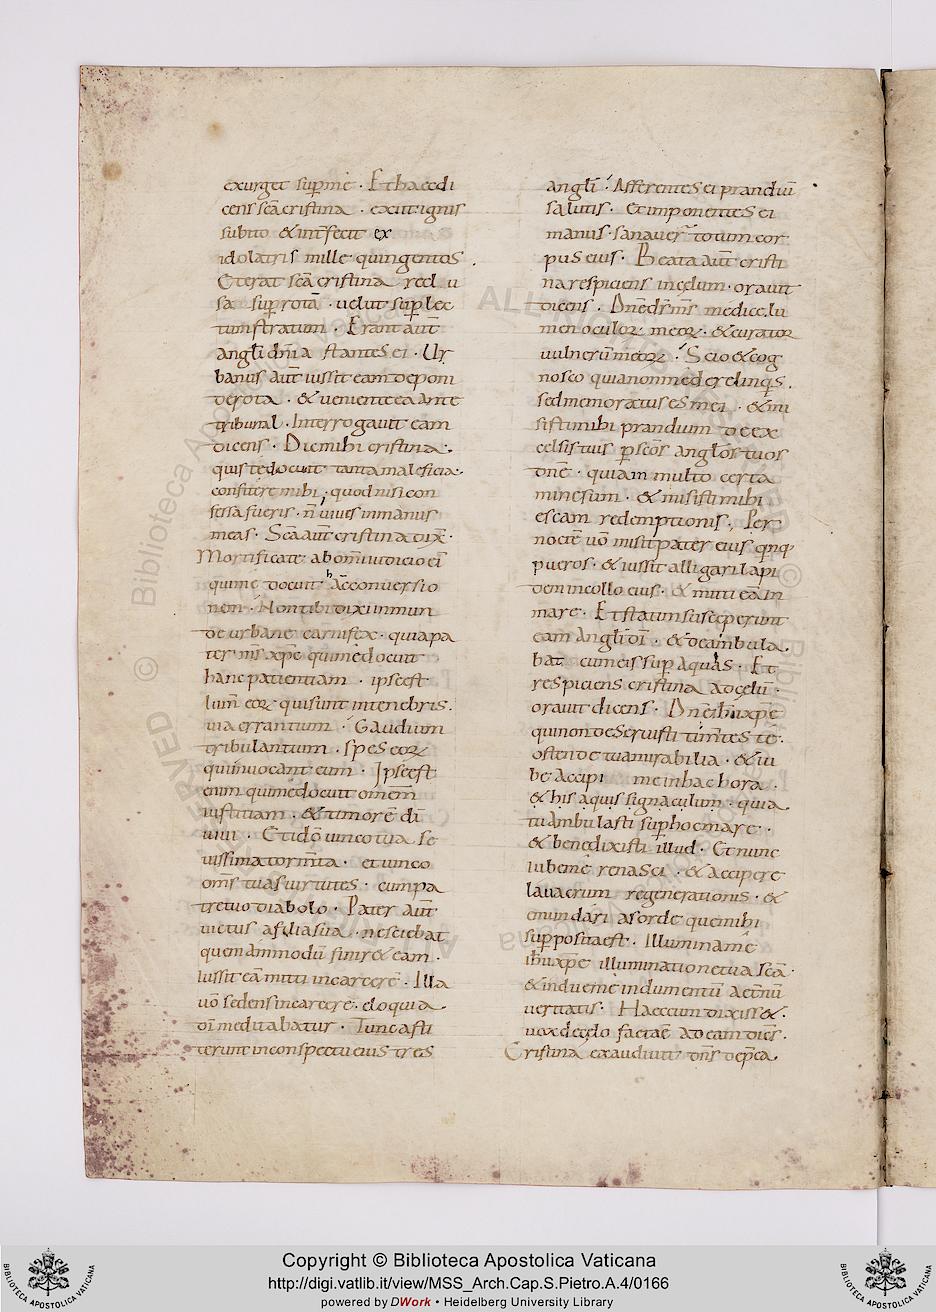 exurget sup me · Et haec di
cens sca cristina · exiit ignis
subito & interfecit ex
idolatris mille quingentos
Et erat sca cristina reclu
sa sup rota · velut sup lec
tum stratum · Erant aut
angli dni a stantes ei · Ur
banus aut iussit eam deponi
de rota · & veniente ea ante
tribunal · Interrogavit eam
dicens · Dic mihi cristina ·
quis te docuit tanta maleficia ·
confitere mihi · quod nisi con
fessa fueris · n vivis in manus
meas · Sca aut cristina dix ·
Mortificate ab omi iudicio di
qui me docuit hac conversio
nem · Non tibi dixi inmun
de urbane carnifex · quia pa
ter ms xpe qui me docuit
hanc patientiam · ipse est
lum eor qui sunt in tenebris ·
via errantium · Gaudium
tribulantium · spes eor
qui invocant eum · Ipse est
enim qui me docuit omem
iustitiam · & timore di
vivi · Et ido vinco tua se
vissima tormta · et vinco
oms tuas virtutes · cum pa
tre tuo diabolo · Pater aut
victus a filia sua · nesciebat
quem ammodu finir& eam ·
Iussit ea mitti in carcere · Illa
vo sedens in carcere · eloquia
di meditabatur · Tunc asti
terunt in conspectu eius tres
angli · Afferentes ei prandiu
salutis · et imponentes ei
manus · sanaver totum cor
pus eius · Beata aut cristi
na respiciens in celum · oravit
dicens · Dne ds ms medice · lu
men oculor meor · & curator
vulneru meor · Scio & cog
nosco quia non me derelinqs ·
sed memoratus es mei · & mi
sisti mihi prandium de ex
celsis tuis p scos anglos tuos
dne · quia in multo certa
mine sum · & misisti mihi
escam redemptionis · Per
nocte vo misit pater eius qnq
pueros · & iussit alligari lapi
dem in collo eius · & mitti ea in
mare · Et statim susceperunt
eam angli di · & deambula
bat cum eis sup aquas · Et
respiciens cristina ad celu ·
oravit dicens · Dne ihu xpe
qui non deservisti timtes te ·
ostende tua mirabilia · & iu
be accipi me in hac hora
& his aquis signaculum · quia
tu ambulasti sup hoc mare ·
& benedixisti illud · Et nunc
iube me renasci · & accipere
lavacrum regenerationis · &
emundari a sorde que mihi
supposita est · Illumina me
ihu xpe illuminatione tua sca ·
& indue me indumentu aetnu
veritatis · Haec cum dixiss& ·
vox de celo facta e ad eam dics ·
Cristina exaudivit dns depca
ALL
©
Copyright © Biblioteca Apostolica Vaticana
http://digi.vatlib.it/view/MSS_Arch.Cap.S.Pietro.A.4/0166
powered by DWork • Heidelberg University Library